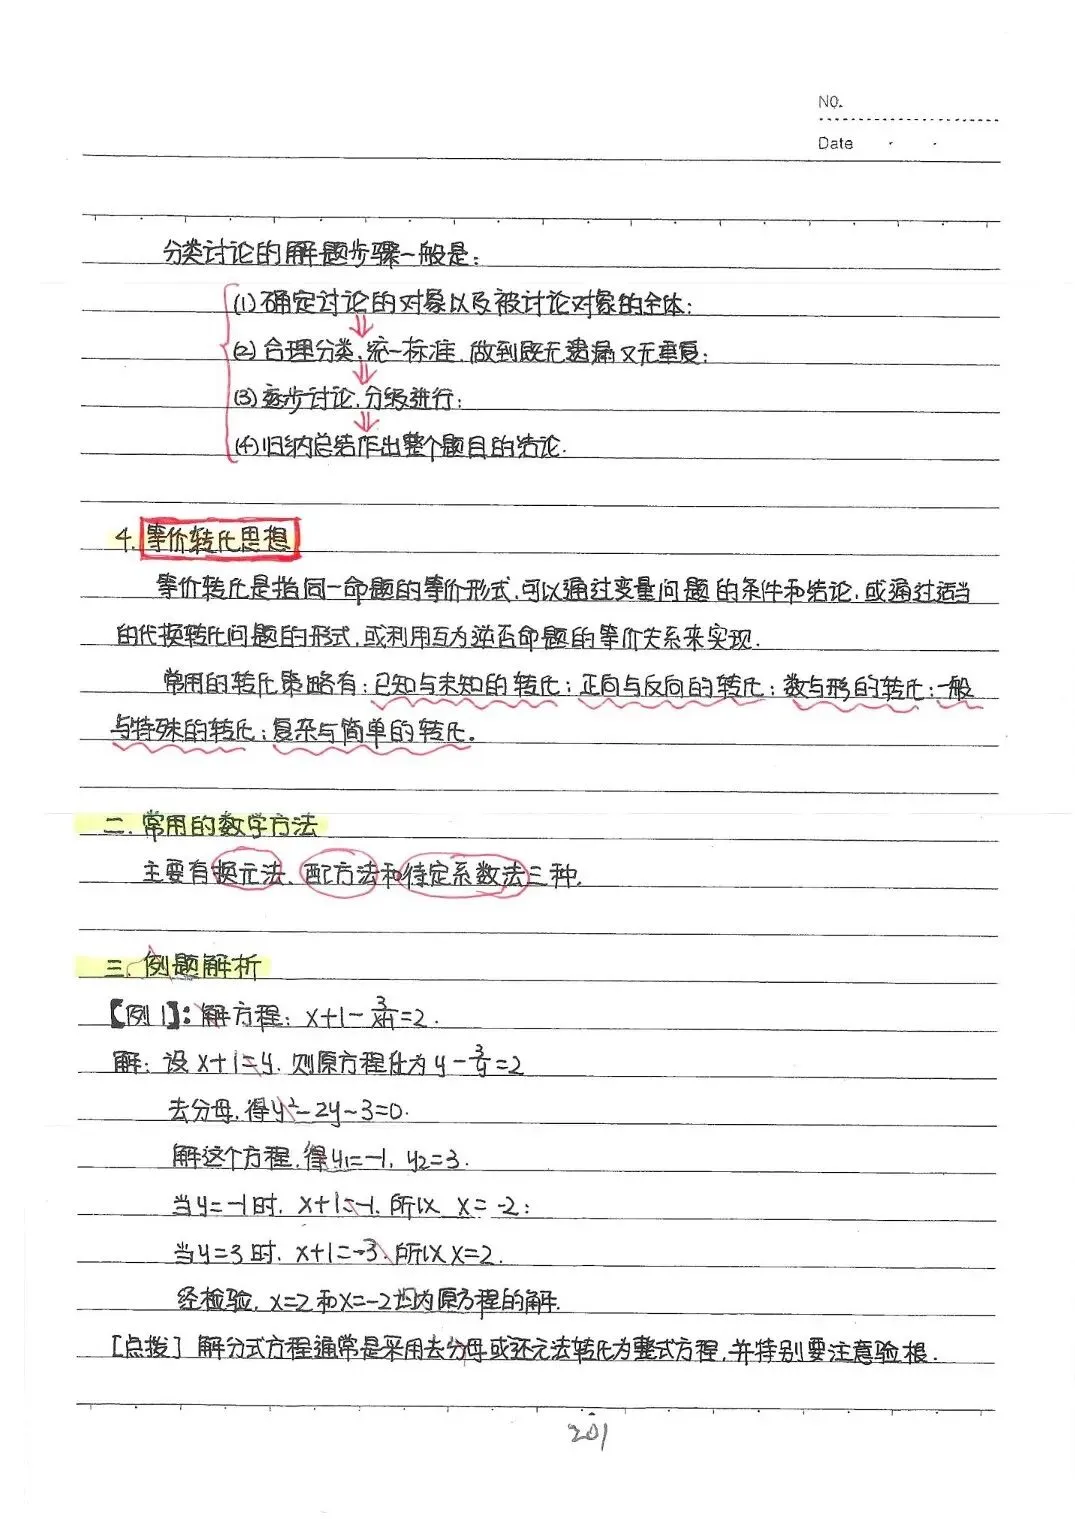 NO.
Date
分类讨论的解题步骤一般是:
(1)确定讨论的对象以及被讨论对象的全体;
(2)合理分类,统一标准,做到既无遗漏又无重复;
(3)逐步讨论,分级进行;
(4)归纳总结作出整个题目的结论.
4.等价转化思想
等价转化是指同一命题的等价形式,可以通过变量问题的条件和结论,或通过适当
的代换转化问题的形式,或利用互为逆否命题的等价关系来实现.
常用的转化策略有:已知与未知的转化;正向与反向的转化;数与形的转化;一般
与特殊的转化;复杂与简单的转化。
二.常用的数学方法
主要有换元法、配方法和待定系数法三种.
三.例题解析
【例1】:解方程:x+1-3/(x+1)=2.
解:设x+1=y,则原方程化为y-3/y=2
去分母,得y²-2y-3=0.
解这个方程,得y₁=-1,y₂=3.
当y=-1时,x+1=-1,所以x=-2;
当y=3时,x+1=-3,所以x=2.
经检验,x=2和x=-2均为原方程的解.
[点拨]解分式方程通常是采用去分母或还元法转化为整式方程,并特别要注意验根.
201